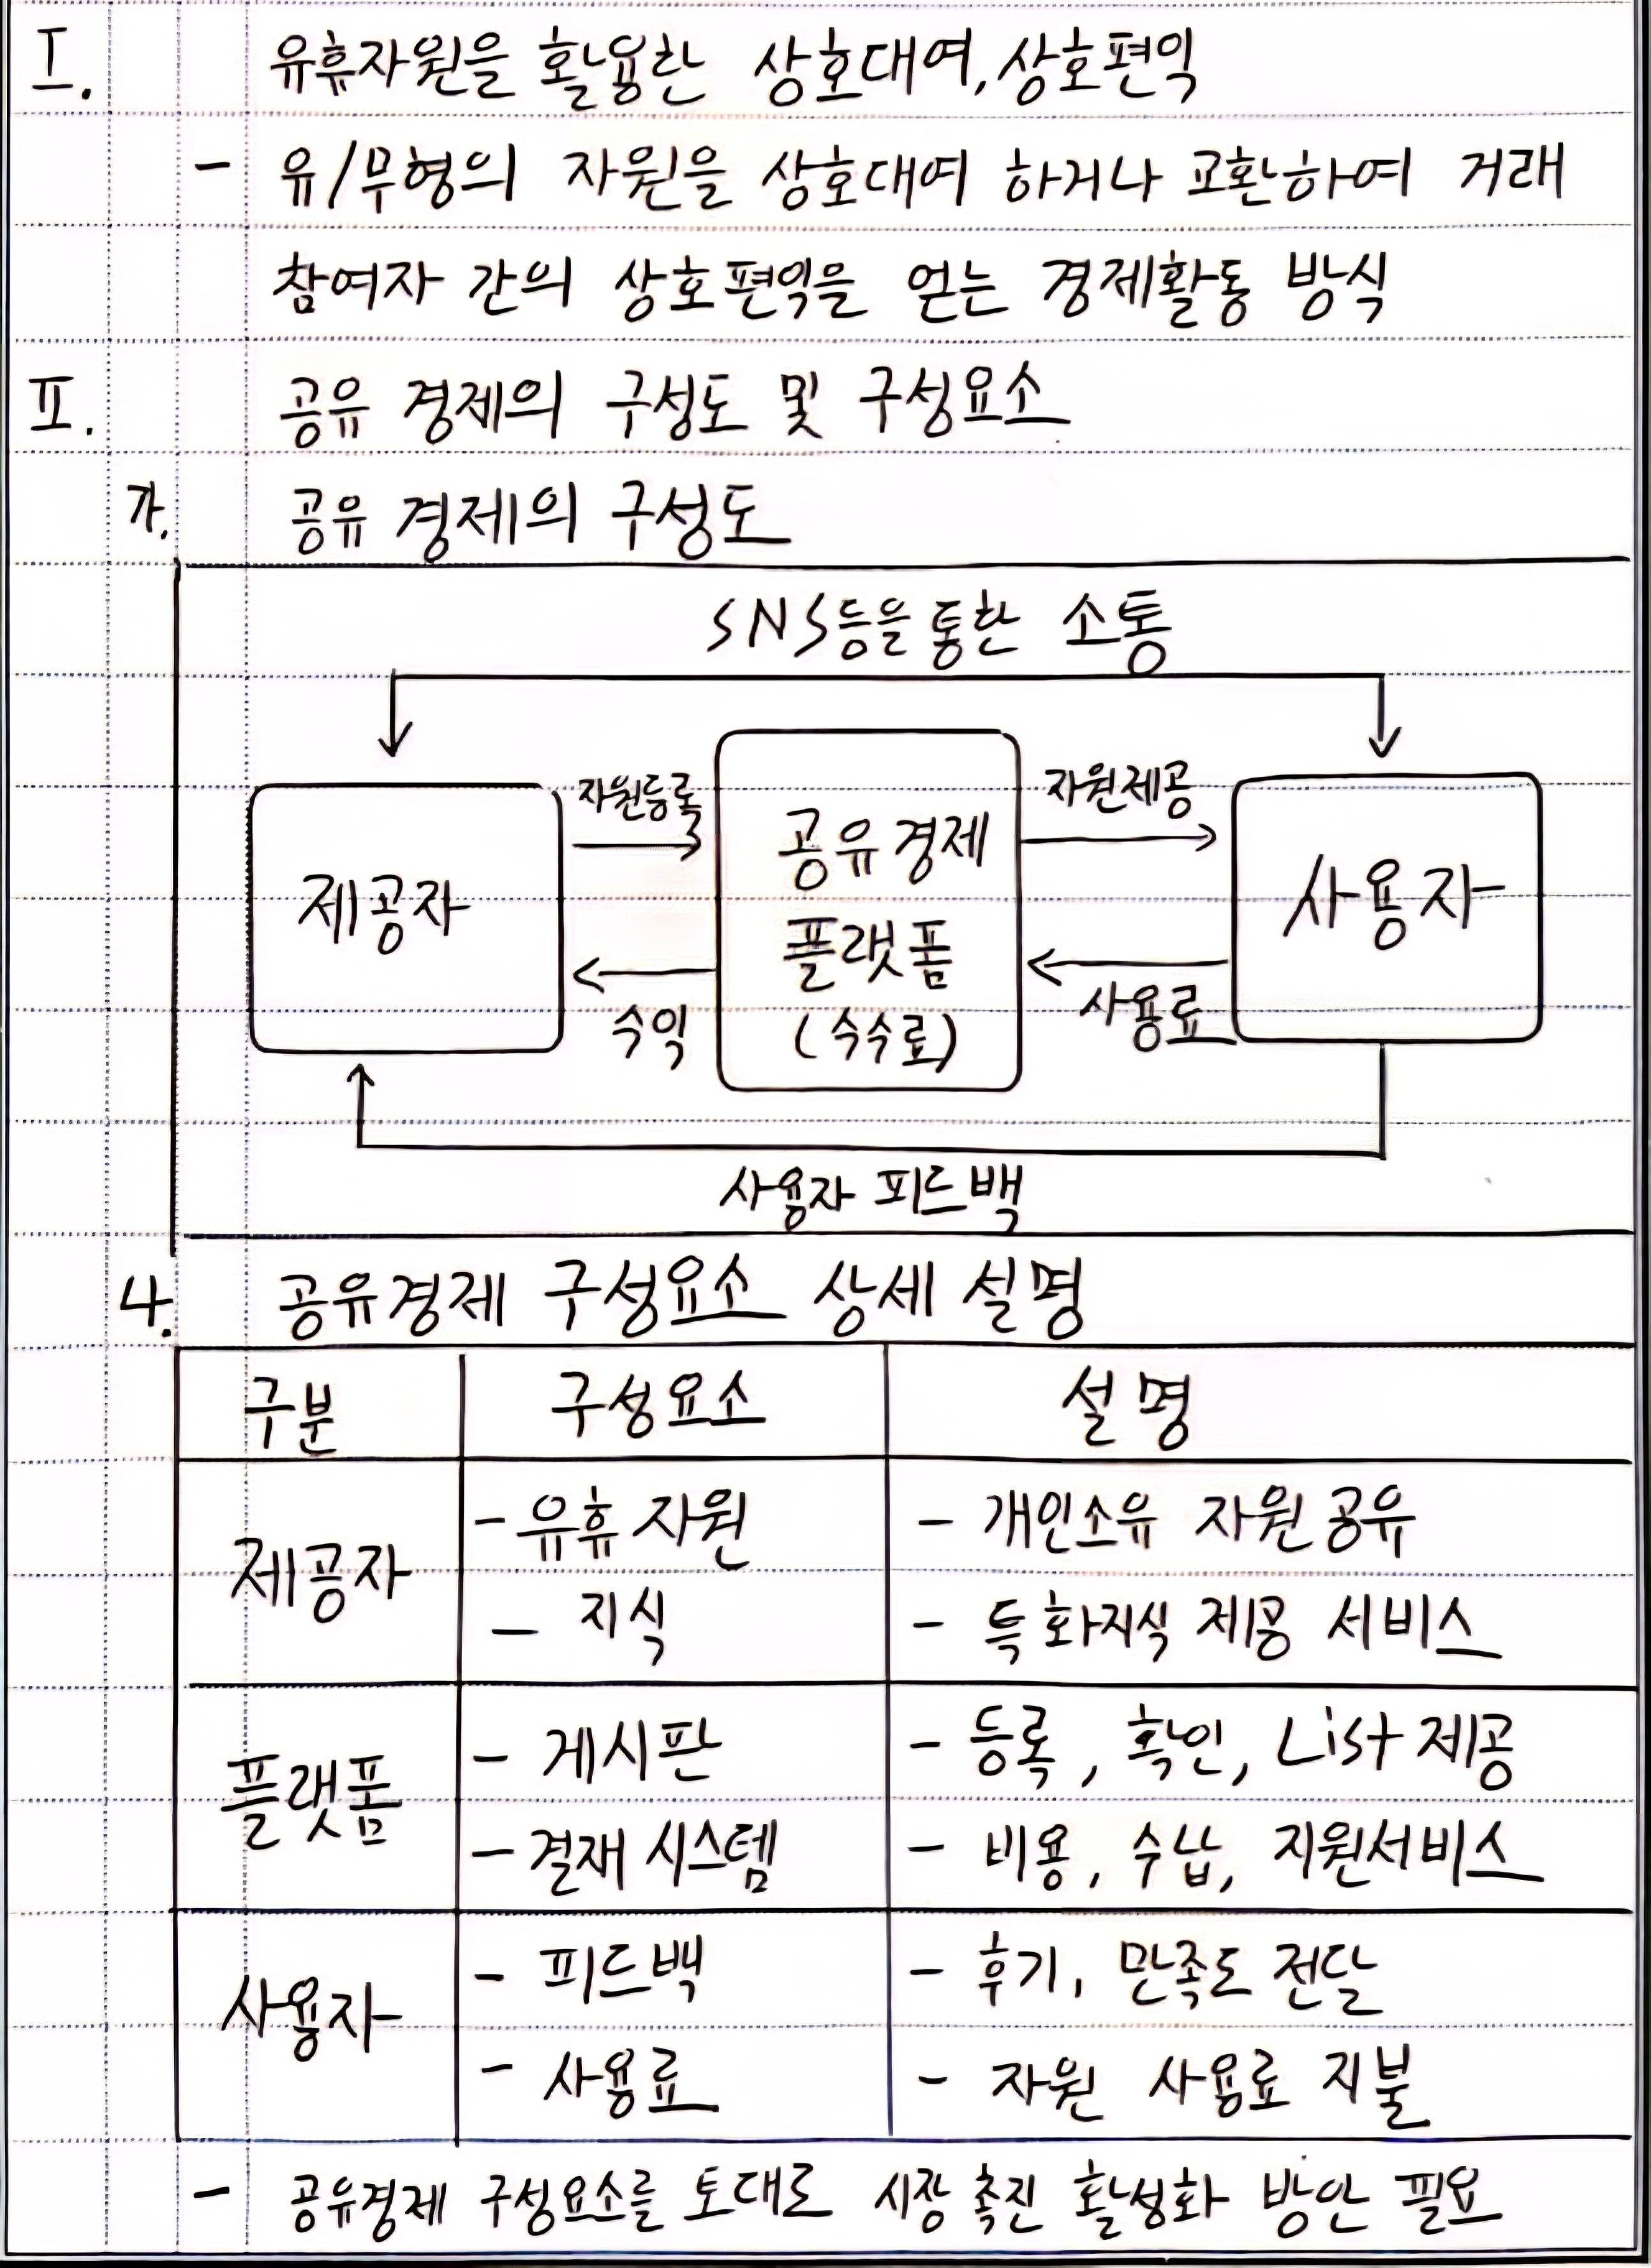 I. 유휴자원을 활용한 상호대여, 상호편익
- 유/무형의 자원을 상호대여 하거나 교환하여 거래
참여자 간의 상호편익을 얻는 경제활동 방식
II. 공유 경제의 구성도 및 구성요소
가. 공유 경제의 구성도
SNS등을 통한 소통
자원등록
자원제공
제공자
공유경제
플랫폼
(수수료)
사용자
수익
사용료
사용자 피드백
나. 공유경제 구성요소 상세 설명
구분 구성요소 설명
제공자
- 유휴 자원 - 개인소유 자원 공유
- 지식 - 특화지식 제공 서비스
플랫폼
- 게시판 - 등록, 확인, List 제공
- 결재 시스템 - 비용, 수납, 지원서비스
사용자
- 피드백 - 후기, 만족도 전달
- 사용료 - 자원 사용료 지불
- 공유경제 구성요소를 토대로 시장 촉진 활성화 방안 필요